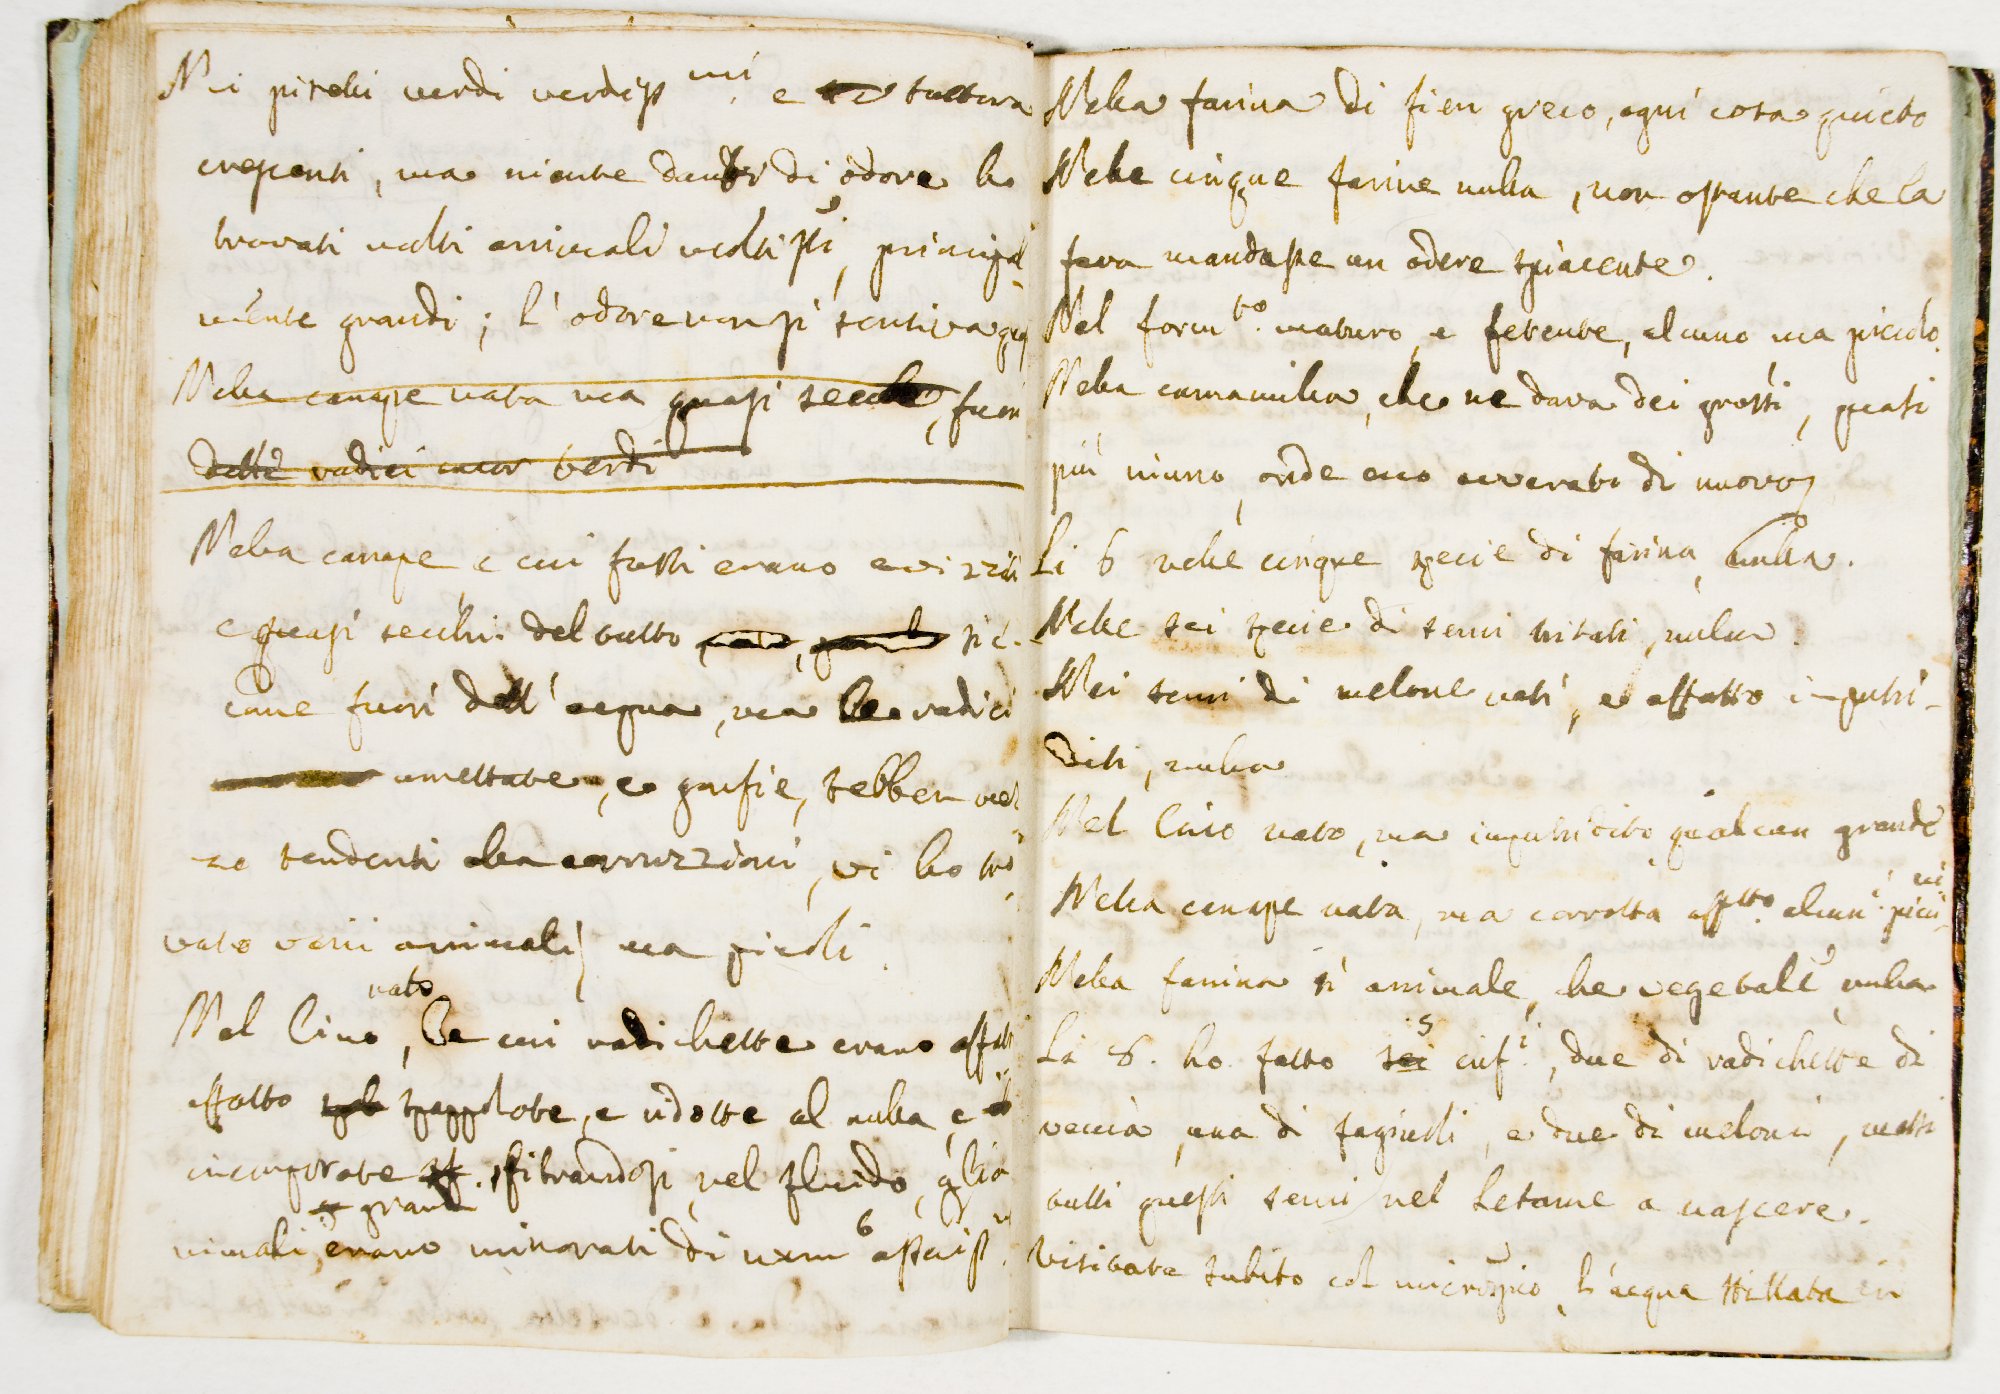 Nei piselli verdi verdiss.mi e tuttora
crescenti, ma niente danti di odore ho
trovati molti animali moltissi, principal
mente grandi; l'odore non si sentiva più
Nella canape nata ma quasi secca, fuori
delle radici ancor verdi
Nella canape i cui fusti erano avvizziti
e quasi secchi del tutto sic-
come fuori dell'acqua, ma le radici
umettate, e gonfie, sebben mez
ze tendenti alla corruzioni, vi ho tro
vato varii animali ma picoli.
Nel lino nato, le cui radichette erano affatto
affatto spappolate, e ridotte al nulla, e
incorporate sfibrandosi nel fluido, gli a
nimali grandi erano minorati di num.o assaiss.
Nella farina di fien greco, ogni cosa quieto
Nelle cinque farine nulla, non ostante che la
fava mandasse un odore spiacente.
Nel form.to maturo e fetente, alcuno ma picciolo.
Nella camamilla, che ne dava dei grossi, quasi
più niuno, onde ecco avverato di nuovo
Li 6 nelle cinque specie di farina, nulla.
Nelle sei specie di semi tritati, nulla.
Nei semi di melone nati, e affatto imputri-
diti, nulla
Nel lino nato, ma imputridito qualcun grande
Nella canape nata, ma corrotta affatto alcuni picci.ni
Nella farina sì animale, che vegetale nulla
Li 8. ho fatto sei 5 inf.i, due di radichette di
veccia, una di fagiuoli, e due di meloni, messi
tutti questi semi nel letame a nascere.
Visitata subito col microscopio l'acqua stillata in